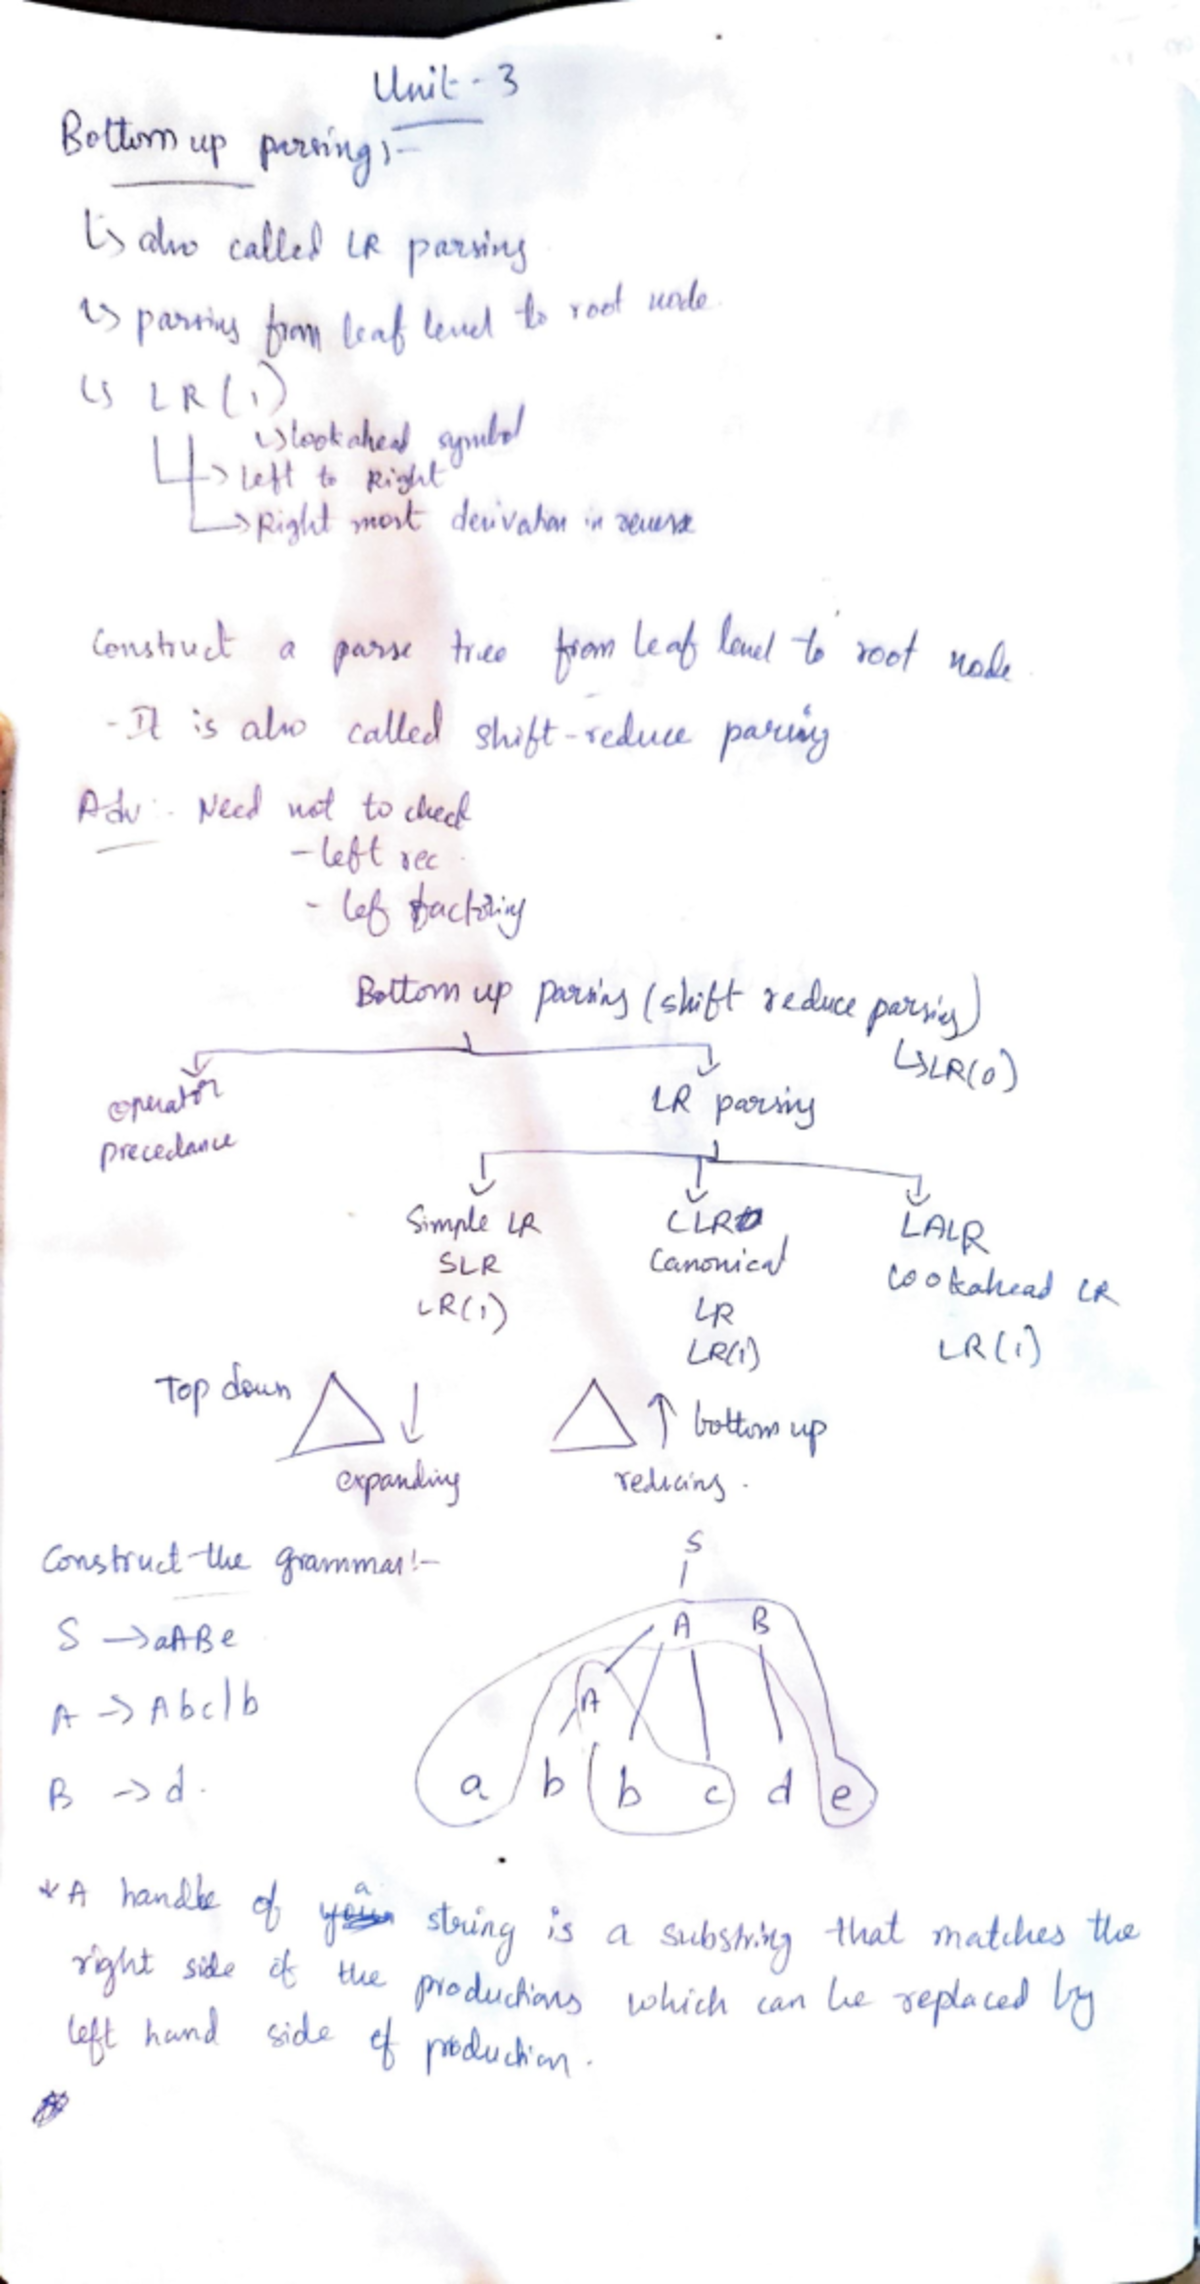 Unit - 3
Bottom up parsing:-
↳ also called LR parsing
↳ parsing from leaf level to root node.
↳ LR(1)
↳ lookahead symbol
→ Left to Right
→ Right most derivation in reverse
Construct a parse tree from leaf level to root node.
- It is also called shift-reduce parsing
Adv:- Need not to check
- left rec.
- lef factoring
Bottom up parsing (shift reduce parsing)
↳ LR(0)
operator
precedance
LR parsing
Simple LR
SLR
LR(1)
CLR
Canonical
LR
LR(1)
LALR
Lookahead LR
LR(1)
Top down ↓
expanding
↑ bottom up
reducing.
Construct the grammar:-
S → aABe
A → Abc|b
B → d.
S
A B
A
a b b c d e
* A handle of a string is a substring that matches the
right side of the productions which can be replaced by
left hand side of production.